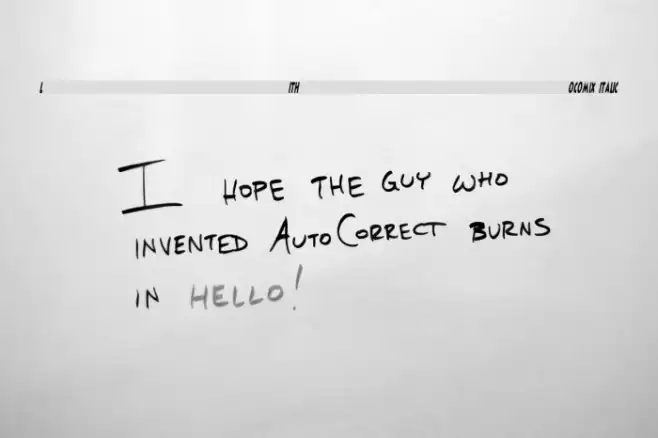 L ITH OCOMIX ITALIC
I HOPE THE GUY WHO
INVENTED AUTOCORRECT BURNS
IN HELLO!